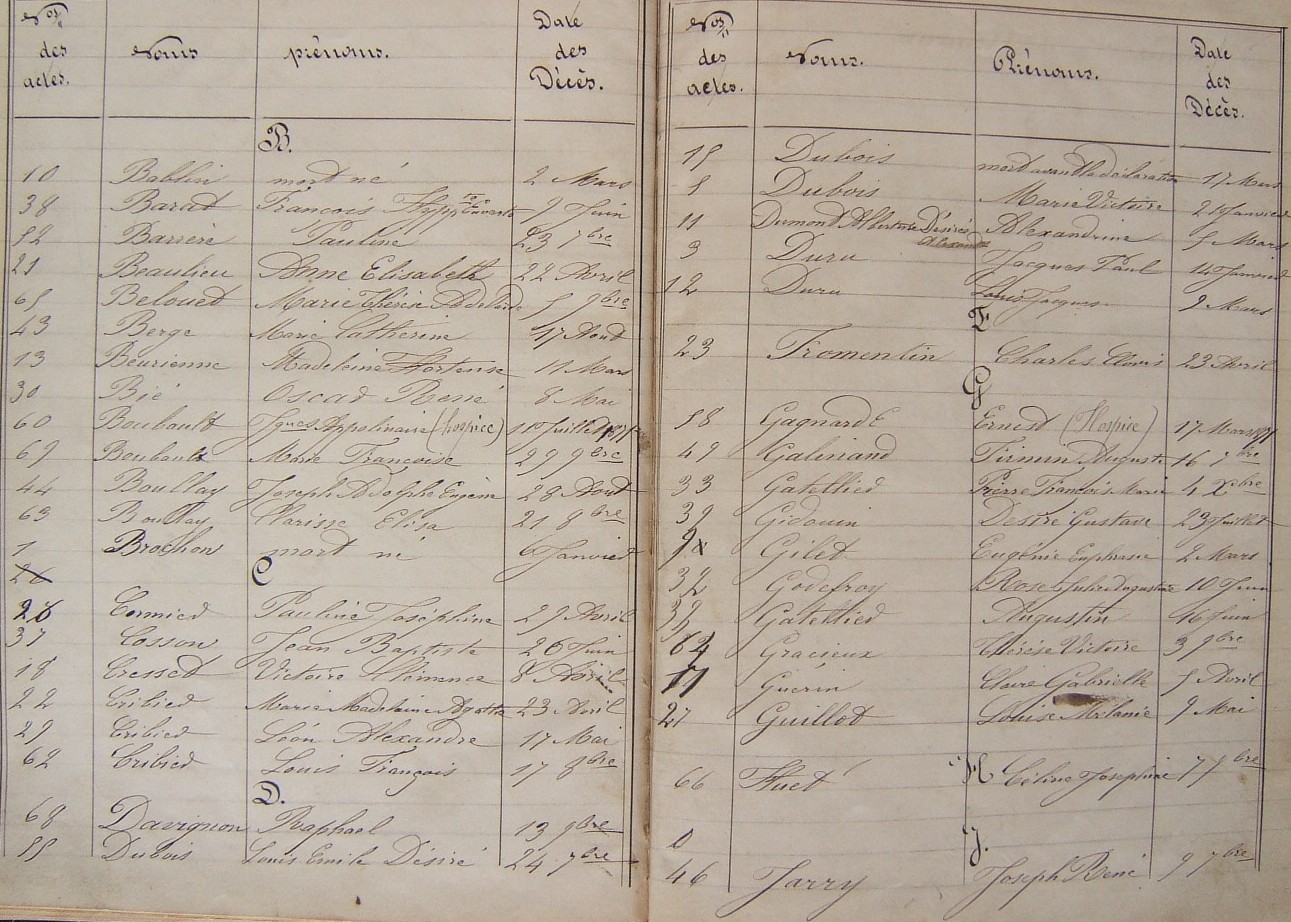 Nos des actes. Noms prénoms. Date des Décès.
B.
10 Bablin mort né 2 Mars
38 Barat François Hypp 9 Juin
52 Barrère Pauline 23 7bre
21 Beaulieu Anne Elisabeth 22 Avril
65 Belouet Marie Thérèse 5 9bre
43 Berge Marie Catherine 17 Aout
13 Beurienne Madeleine Hortense 11 Mars
30 Bié Oscar René 8 Mai
60 Boubault Jques Appolinaire (hospice) Juillet 1871
69 Boubault Marie Françoise 29 9bre
44 Boullay Joseph Adolphe Eugène 28 Aout
63 Boullay Clarisse Elisa 21 8bre
1 Brochon mort né 6 Janvier
26 C
28 Cormier Pauline Joséphine 29 Avril
37 Cosson Jean Baptiste 26 Juin
18 Cresset Victoire Clémence 8 Avril
22 Cribier Marie Madeleine Agathe 23 Avril
29 Cribier Léon Alexandre 17 Mai
62 Cribier Louis François 17 8bre
D.
68 Davignon Raphael 13 9bre
55 Dubois Louis Emile Désiré 24 7bre
Nos des actes. Noms. Prénoms. Date des Décès.
15 Dubois mort avant la déclaration 17 Mars
5 Dubois Marie Victoire Janvier
11 Dumond Désirée Alexandrine 5 Mars
3 Duru Jacques Paul 14 Janvier
12 Duru Louis Jacques 9 Mars
F
23 Fromentin Charles Clovis 23 Avril
G
58 Gagnard Ernest (Hospice) 17 Mars 1871
49 Galinand Firmin Auguste 16 7bre
33 Gatellier Pierre François Marie 4 Xbre
39 Gidouin Désiré Gustave 23 Juillet
9 Gilet Eugénie Euphrasie 2 Mars
32 Godefroy Rose Julie Augustine 10 Juin
Gatellier Augustin 16 Juin
64 Gracieux Thérèse Victoire 3 9bre
17 Guérin Claire Gabrielle 5 Avril
27 Guillot Louise Mélanie 9 Mai
H
66 Huet Céline Joséphine 7 9bre
0 J.
46 Jarry Joseph René 9 7bre